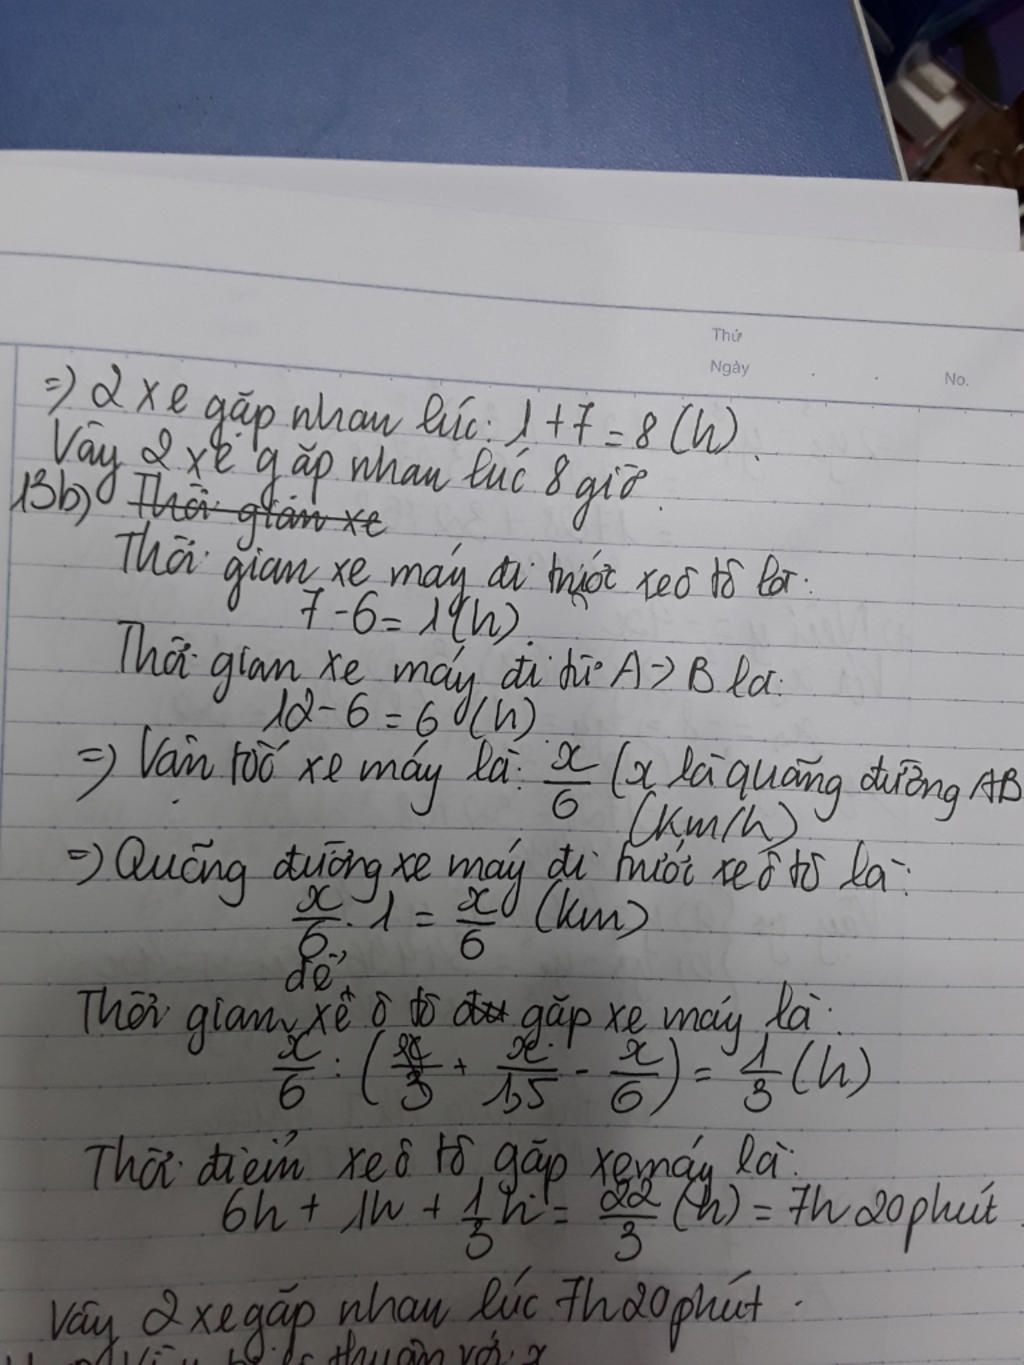 Thứ
Ngày . . No.
=) 2 xe gặp nhau lúc: 1 + 7 = 8 (h).
Vậy 2 xe gặp nhau lúc 8 giờ.
13b) Thời gian xe
Thời gian xe máy đi trước xe ô tô là:
7 - 6 = 1 (h).
Thời gian xe máy đi từ A > B là:
12 - 6 = 6 (h)
=) Vân tốc xe máy là: x/6 (x là quãng đường AB
(km/h)
=) Quãng đường xe máy đi trước xe ô tô là:
x/6 . 1 = x/6 (km)
để
Thời gian xe ô tô gặp xe máy là:
x/6 : (x/3 + x/1,5 - x/6) = 1/3 (h)
Thời điểm xe ô tô gặp xe máy là:
6h + 1h + 1/3 h = 22/3 (h) = 7h 20 phút.
Vậy 2 xe gặp nhau lúc 7h 20 phút.
thuận với x